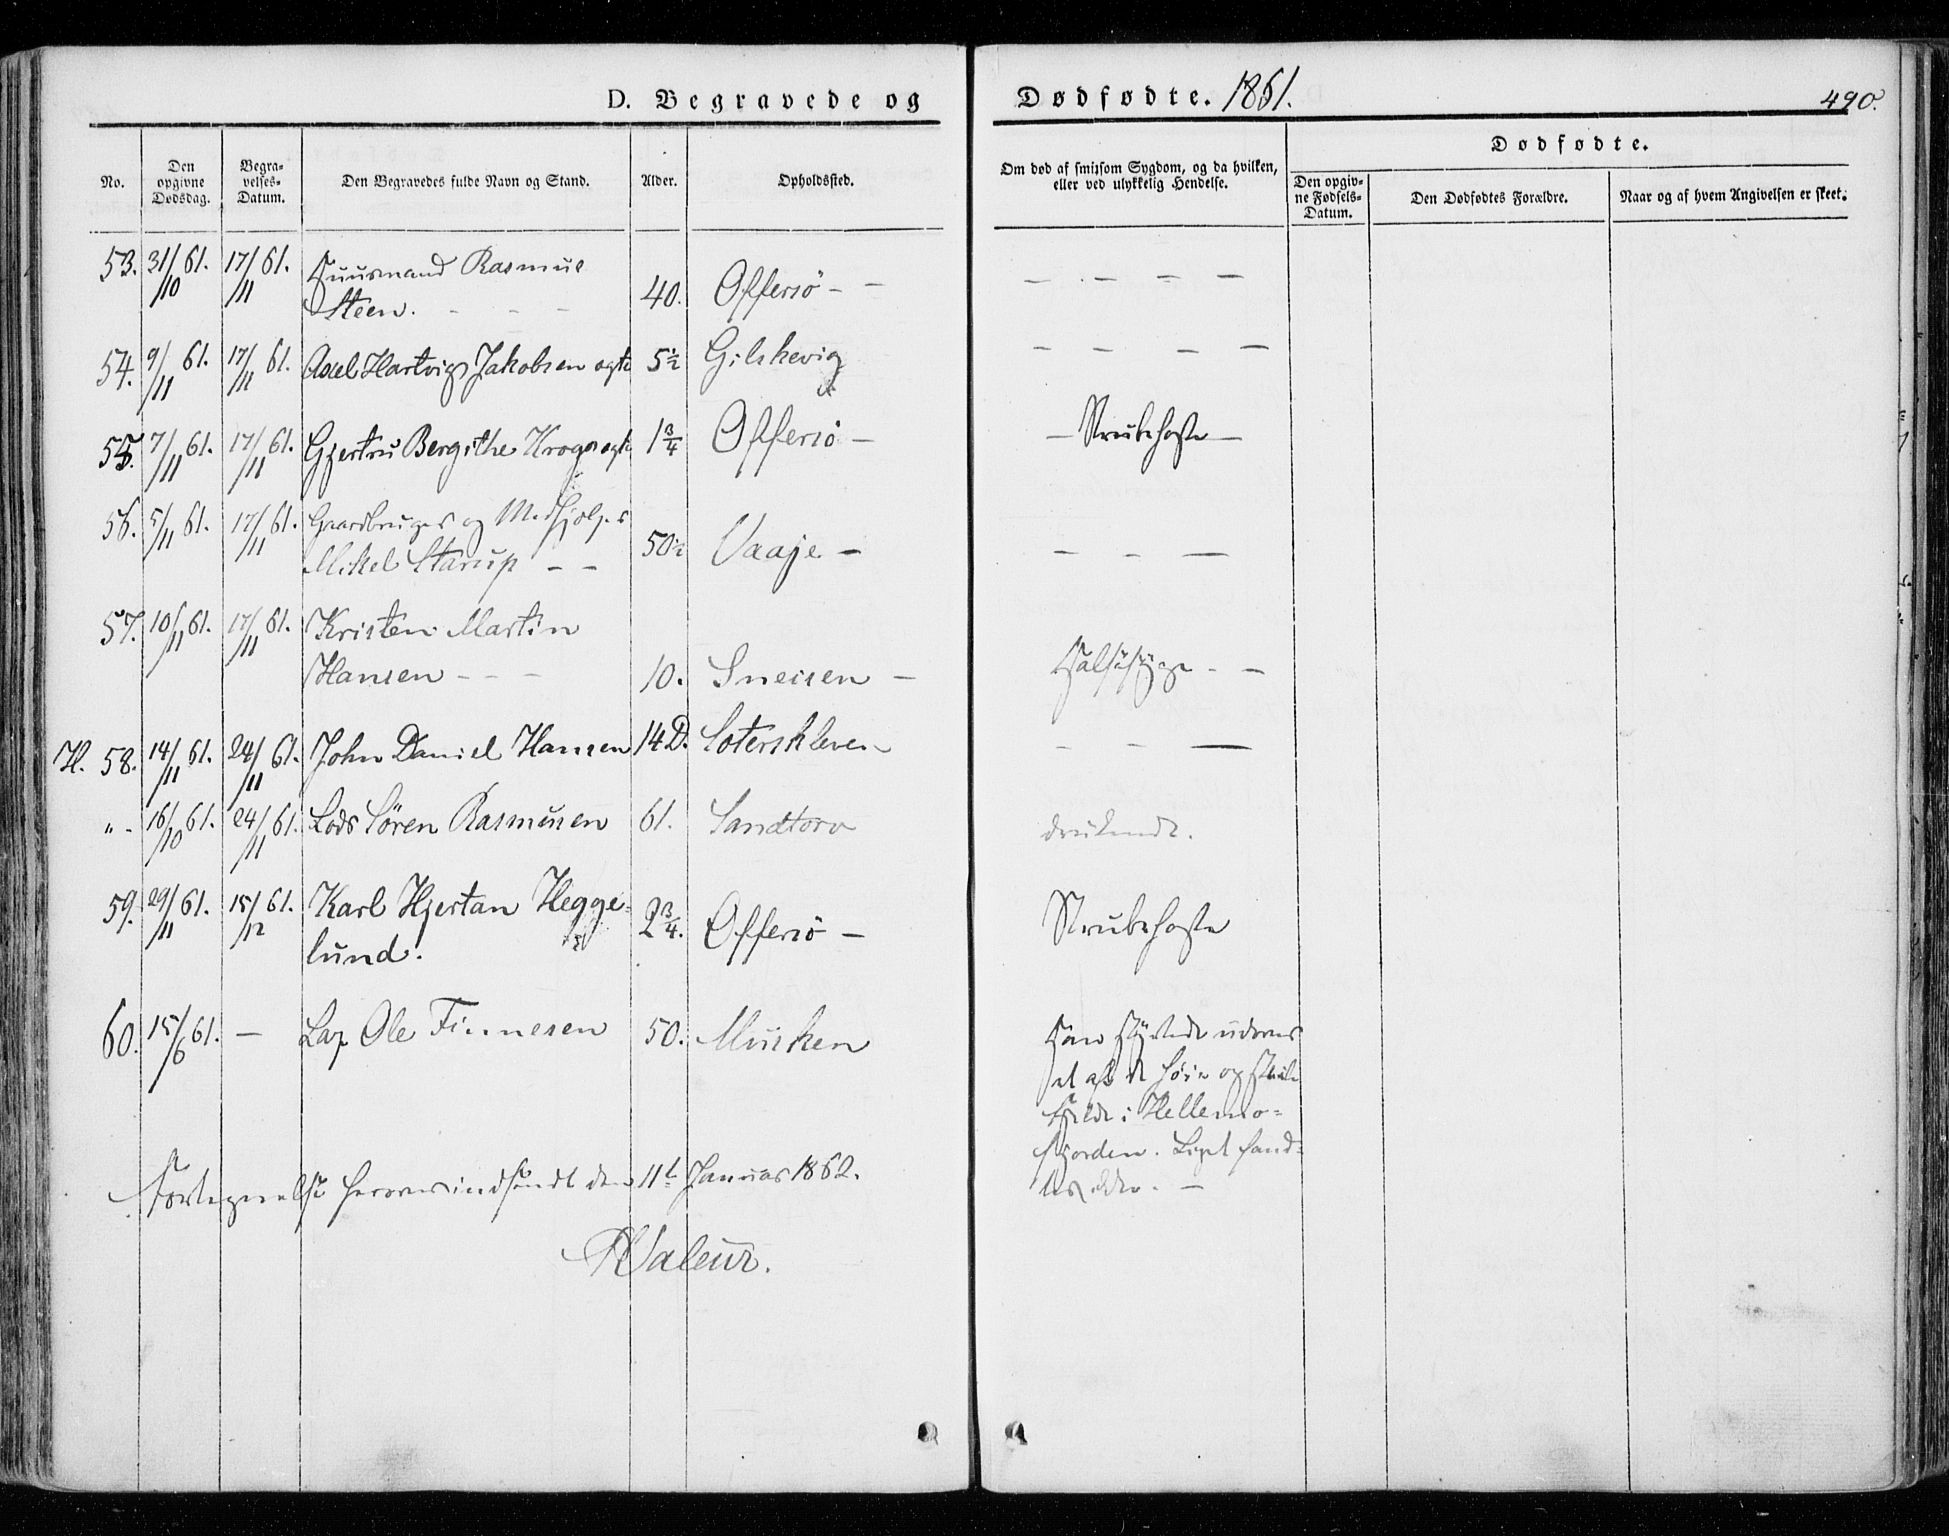 D. Begravede og Dødfødte. 1861. 490.
No.
Den opgivne Dødsdag.
Begravelses-Datum.
Den Begravedes fulde Navn og Stand.
Alder.
Opholdssted.
Om død af smitsom Sygdom, og da hvilken, eller ved ulykkelig Hendelse.
Dødfødte.
Den opgivne Fødsels-Datum.
Den Dødfødtes Forældre.
Naar og af hvem Angivelsen er skeet.
53. 31/10 61. 17/11 61. Huusmand Rasmus
Steen. - - - 40. Offersö - - - . - - -
54. 9/11 61. 17/11 61. Axel Hartvig Jakobsen ægte 5½ Gilshevig - - - -
55. 7/11 61. 17/11 61. Gjertru Bergithe Krogs ægte 1¾ Offersö - - Strubehoste -
56. 5/11 61. 17/11 61. Gaardbruger og Medhjelper
Mikel Starup - - 50½ Vaaje - - - -
57. 10/11 61. 17/11 61. Kristen Martin
Hansen - - - 10. Sneisen - Halssyge - -
H. 58. 14/11 61. 24/11 61. John Daniel Hansen 14 D. Soterskleven - - -
" - 16/10 61. 24/11 61. Lods Sören Rasmusen 61. Sandtorv druknede.
59. 29/11 61. 15/12 61. Karl Hjertan Hegge-
lund. 2¾. Offersö - Strubehoste
60. 15/6 61. - Lap Ole Finnesen 50. Musken Han styrtede udover
et af de høie og steile
Fjelde i Hellemo-
fjorden. Liget fand-
tes ikke. -
Fortegnelse herover indsendt den 11te Januar 1862.
Valeur.